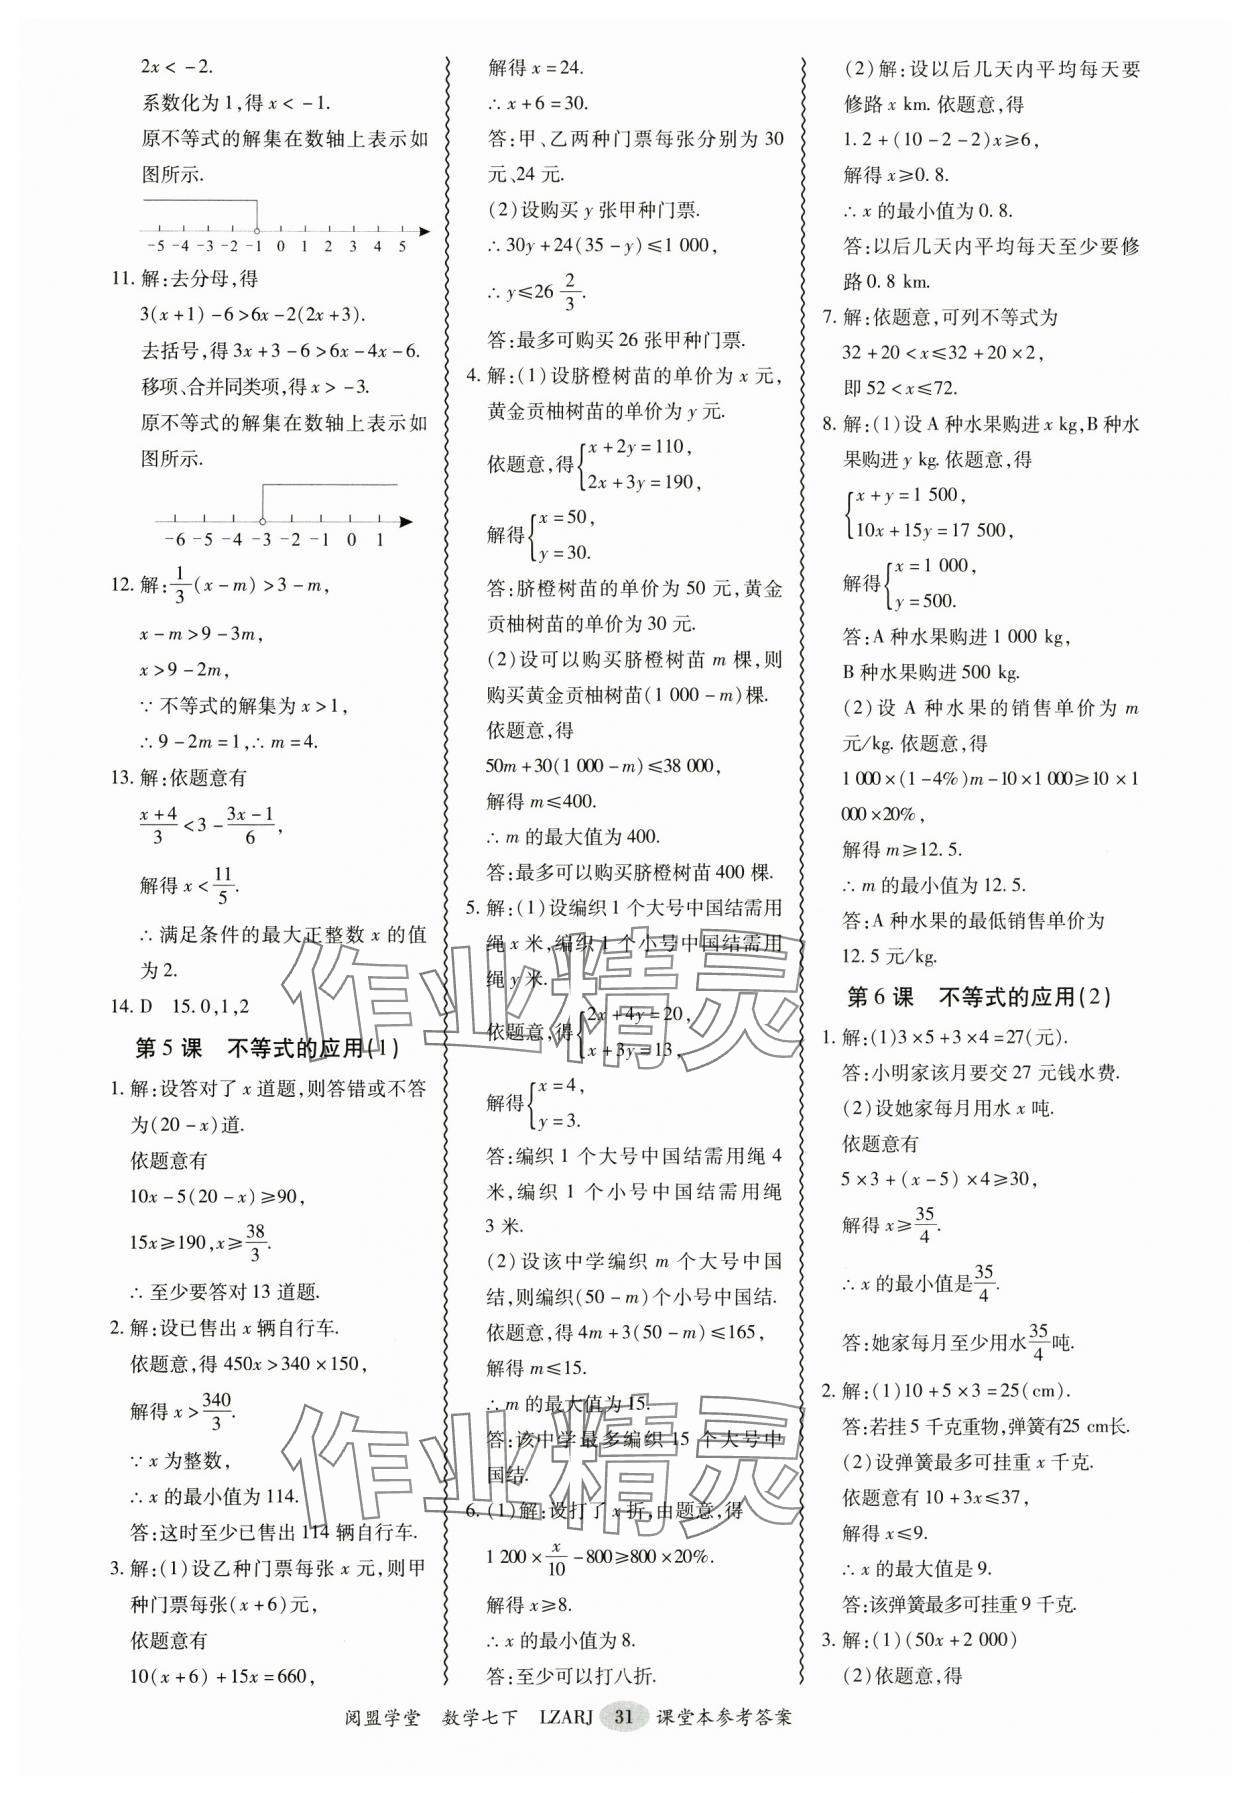 2x< -2.
系数化为1,得x< -1.
原不等式的解集在数轴上表示如
图所示.
-5 -4 -3 -2 -1 0 1 2 3 4 5
11. 解:去分母,得
3(x+1)-6>6x-2(2x+3).
去括号,得3x+3-6>6x-4x-6.
移项、合并同类项,得x> -3.
原不等式的解集在数轴上表示如
图所示.
-6 -5 -4 -3 -2 -1 0 1
12. 解:1/3(x-m)>3-m,
x-m>9-3m,
x>9-2m,
∵不等式的解集为x>1,
∴9-2m=1,∴m=4.
13. 解:依题意有
(x+4)/3<3-(3x-1)/6,
解得x<11/5.
∴满足条件的最大正整数x的值
为2.
14. D 15. 0,1,2
第5课 不等式的应用(1)
1. 解:设答对了x道题,则答错或不答
为(20-x)道.
依题意有
10x-5(20-x)≥90,
15x≥190,x≥38/3.
∴至少要答对13道题.
2. 解:设已售出x辆自行车.
依题意,得450x>340×150,
解得x>340/3.
∵x为整数,
∴x的最小值为114.
答:这时至少已售出114辆自行车.
3. 解:(1)设乙种门票每张x元,则甲
种门票每张(x+6)元,
依题意有
10(x+6)+15x=660,
解得x=24.
∴x+6=30.
答:甲、乙两种门票每张分别为30
元、24元.
(2)设购买y张甲种门票.
∴30y+24(35-y)≤1 000,
∴y≤26 2/3.
答:最多可购买26张甲种门票.
4. 解:(1)设脐橙树苗的单价为x元,
黄金贡柚树苗的单价为y元.
依题意,得{x+2y=110,
2x+3y=190,
解得{x=50,
y=30.
答:脐橙树苗的单价为50元,黄金
贡柚树苗的单价为30元.
(2)设可以购买脐橙树苗m棵,则
购买黄金贡柚树苗(1 000-m)棵.
依题意,得
50m+30(1 000-m)≤38 000,
解得m≤400.
∴m的最大值为400.
答:最多可以购买脐橙树苗400棵.
5. 解:(1)设编织1个大号中国结需用
绳x米,编织1个小号中国结需用
绳y米.
依题意,得{2x+4y=20,
x+3y=13,
解得{x=4,
y=3.
答:编织1个大号中国结需用绳4
米,编织1个小号中国结需用绳
3米.
(2)设该中学编织m个大号中国
结,则编织(50-m)个小号中国结.
依题意,得4m+3(50-m)≤165,
解得m≤15.
∴m的最大值为15.
答:该中学最多编织15个大号中
国结.
6. (1)解:设打了x折,由题意,得
1 200×x/10-800≥800×20%.
解得x≥8.
∴x的最小值为8.
答:至少可以打八折.
(2)解:设以后几天内平均每天要
修路x km.依题意,得
1.2+(10-2-2)x≥6,
解得x≥0.8.
∴x的最小值为0.8.
答:以后几天内平均每天至少要修
路0.8 km.
7. 解:依题意,可列不等式为
32+20<x≤32+20×2,
即52<x≤72.
8. 解:(1)设A种水果购进x kg,B种水
果购进y kg.依题意,得
{x+y=1 500,
10x+15y=17 500,
解得{x=1 000,
y=500.
答:A种水果购进1 000 kg,
B种水果购进500 kg.
(2)设A种水果的销售单价为m
元/kg.依题意,得
1 000×(1-4%)m-10×1 000≥10×1
000×20%,
解得m≥12.5.
∴m的最小值为12.5.
答:A种水果的最低销售单价为
12.5元/kg.
第6课 不等式的应用(2)
1. 解:(1)3×5+3×4=27(元).
答:小明家该月要交27元钱水费.
(2)设她家每月用水x吨.
依题意有
5×3+(x-5)×4≥30,
解得x≥35/4.
∴x的最小值是35/4.
答:她家每月至少用水35/4吨.
2. 解:(1)10+5×3=25(cm).
答:若挂5千克重物,弹簧有25 cm长.
(2)设弹簧最多可挂重x千克.
依题意有10+3x≤37,
解得x≤9.
∴x的最大值是9.
答:该弹簧最多可挂重9千克.
3. 解:(1)(50x+2 000)
(2)依题意,得
作业精灵
作业精灵
阅盟学堂 数学七下 LZARJ 31 课堂本参考答案